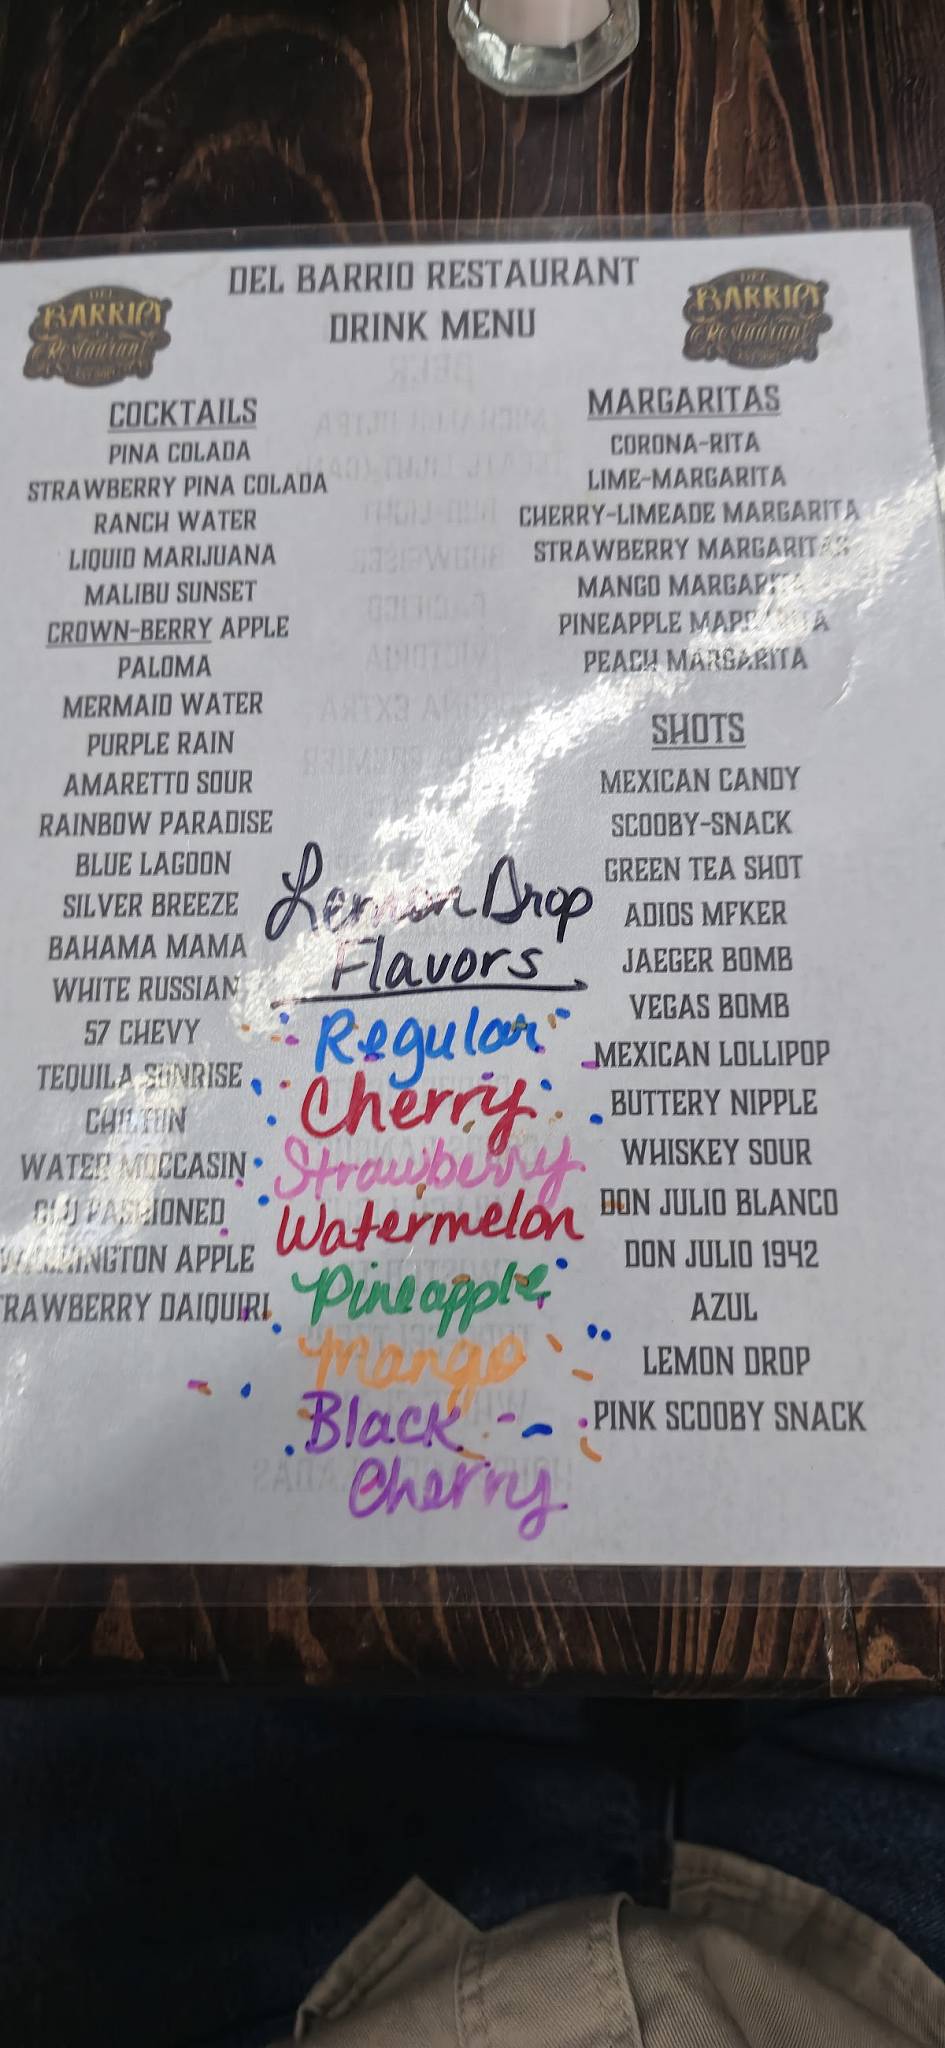 DEL BARRIO RESTAURANT
DRINK MENU
DEL
BARRIO
Restaurant
DEL
BARRIO
Restaurant
COCKTAILS
PINA COLADA
STRAWBERRY PINA COLADA
RANCH WATER
LIQUID MARIJUANA
MALIBU SUNSET
CROWN-BERRY APPLE
PALOMA
MERMAID WATER
PURPLE RAIN
AMARETTO SOUR
RAINBOW PARADISE
BLUE LAGOON
SILVER BREEZE
BAHAMA MAMA
WHITE RUSSIAN
57 CHEVY
TEQUILA SUNRISE
CHILTON
WATER MOCCASIN
OLD FASHIONED
WASHINGTON APPLE
TRAWBERRY DAIQUIRI
Lemon Drop
Flavors
Regular
Cherry
Strawberry
Watermelon
Pineapple
Mango
Black
Cherry
MARGARITAS
CORONA-RITA
LIME-MARGARITA
CHERRY-LIMEADE MARGARITA
STRAWBERRY MARGARITAS
MANGO MARGARITA
PINEAPPLE MARGARITA
PEACH MARGARITA
SHOTS
MEXICAN CANDY
SCOOBY-SNACK
GREEN TEA SHOT
ADIOS MFKER
JAEGER BOMB
VEGAS BOMB
MEXICAN LOLLIPOP
BUTTERY NIPPLE
WHISKEY SOUR
DON JULIO BLANCO
DON JULIO 1942
AZUL
LEMON DROP
PINK SCOOBY SNACK